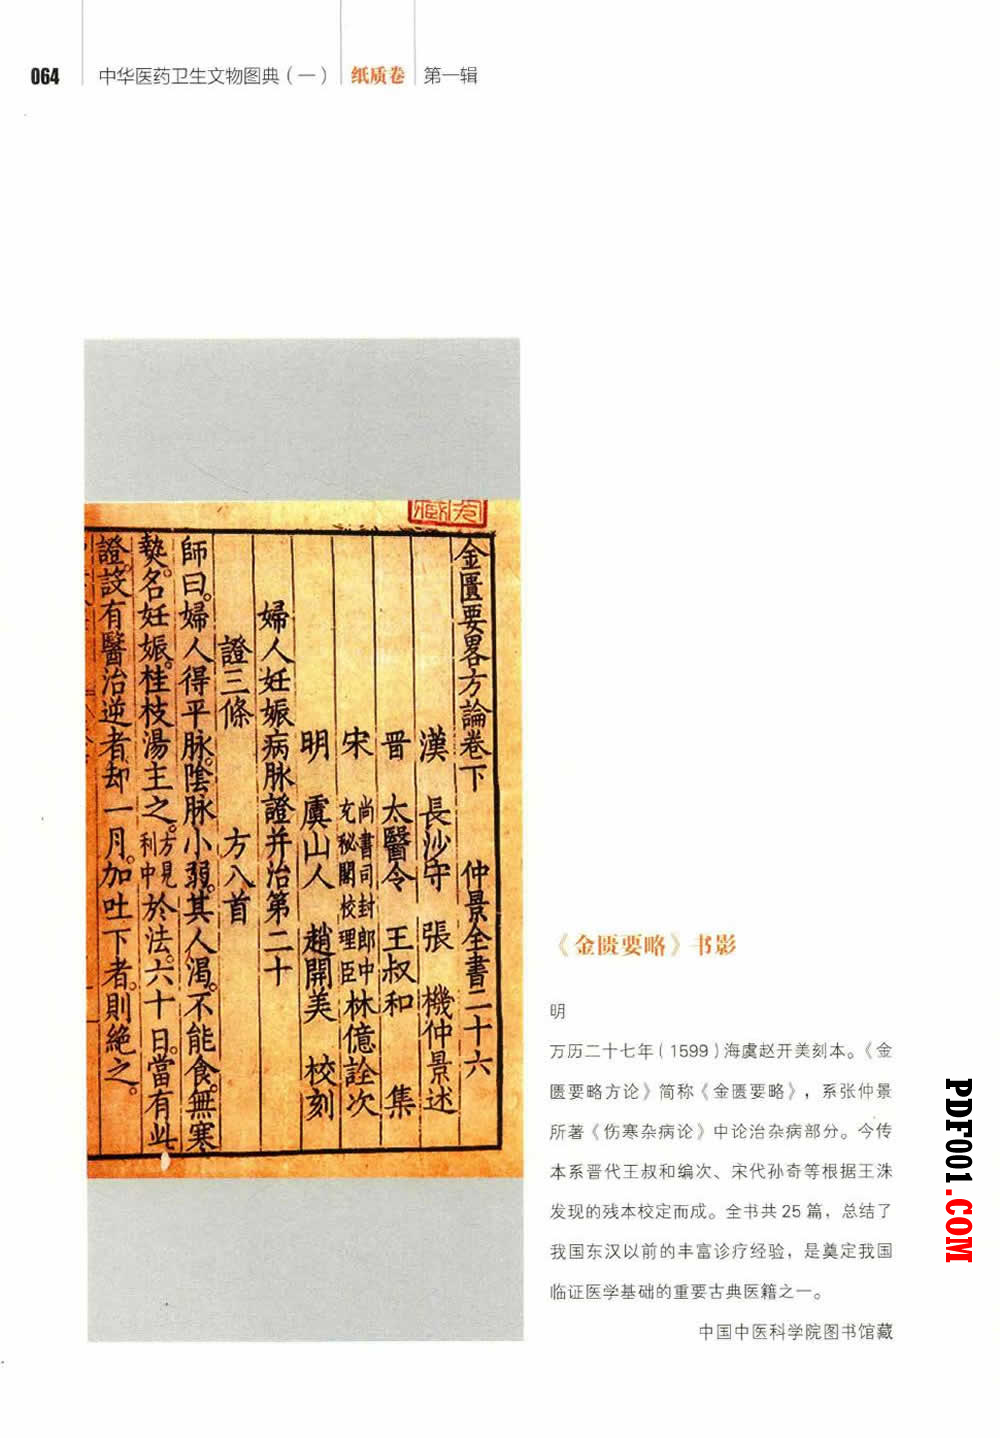 064 中华医药卫生文物图典（一） 纸质卷 第一辑
金匱要畧方論卷下 仲景全書二十六
漢 長沙守 張 機仲景述
晋 太醫令 王叔和 集
宋 尚書司封郎中充秘閣校理臣林億詮次
明 虞山人 趙開美 校刻
婦人妊娠病脉證并治第二十
證三條 方八首
師曰婦人得平脉。陰脉小弱。其人渴。不能食。無寒
熱。名妊娠。桂枝湯主之。方見利中於法。六十日。當有此
證。設有醫治逆者。却一月。加吐下者。則絶之。
《金匮要略》书影
明
万历二十七年（1599）海虞赵开美刻本。《金
匮要略方论》简称《金匮要略》，系张仲景
所著《伤寒杂病论》中论治杂病部分。今传
本系晋代王叔和编次、宋代孙奇等根据王洙
发现的残本校定而成。全书共 25 篇，总结了
我国东汉以前的丰富诊疗经验，是奠定我国
临证医学基础的重要古典医籍之一。
中国中医科学院图书馆藏
PDF001.COM